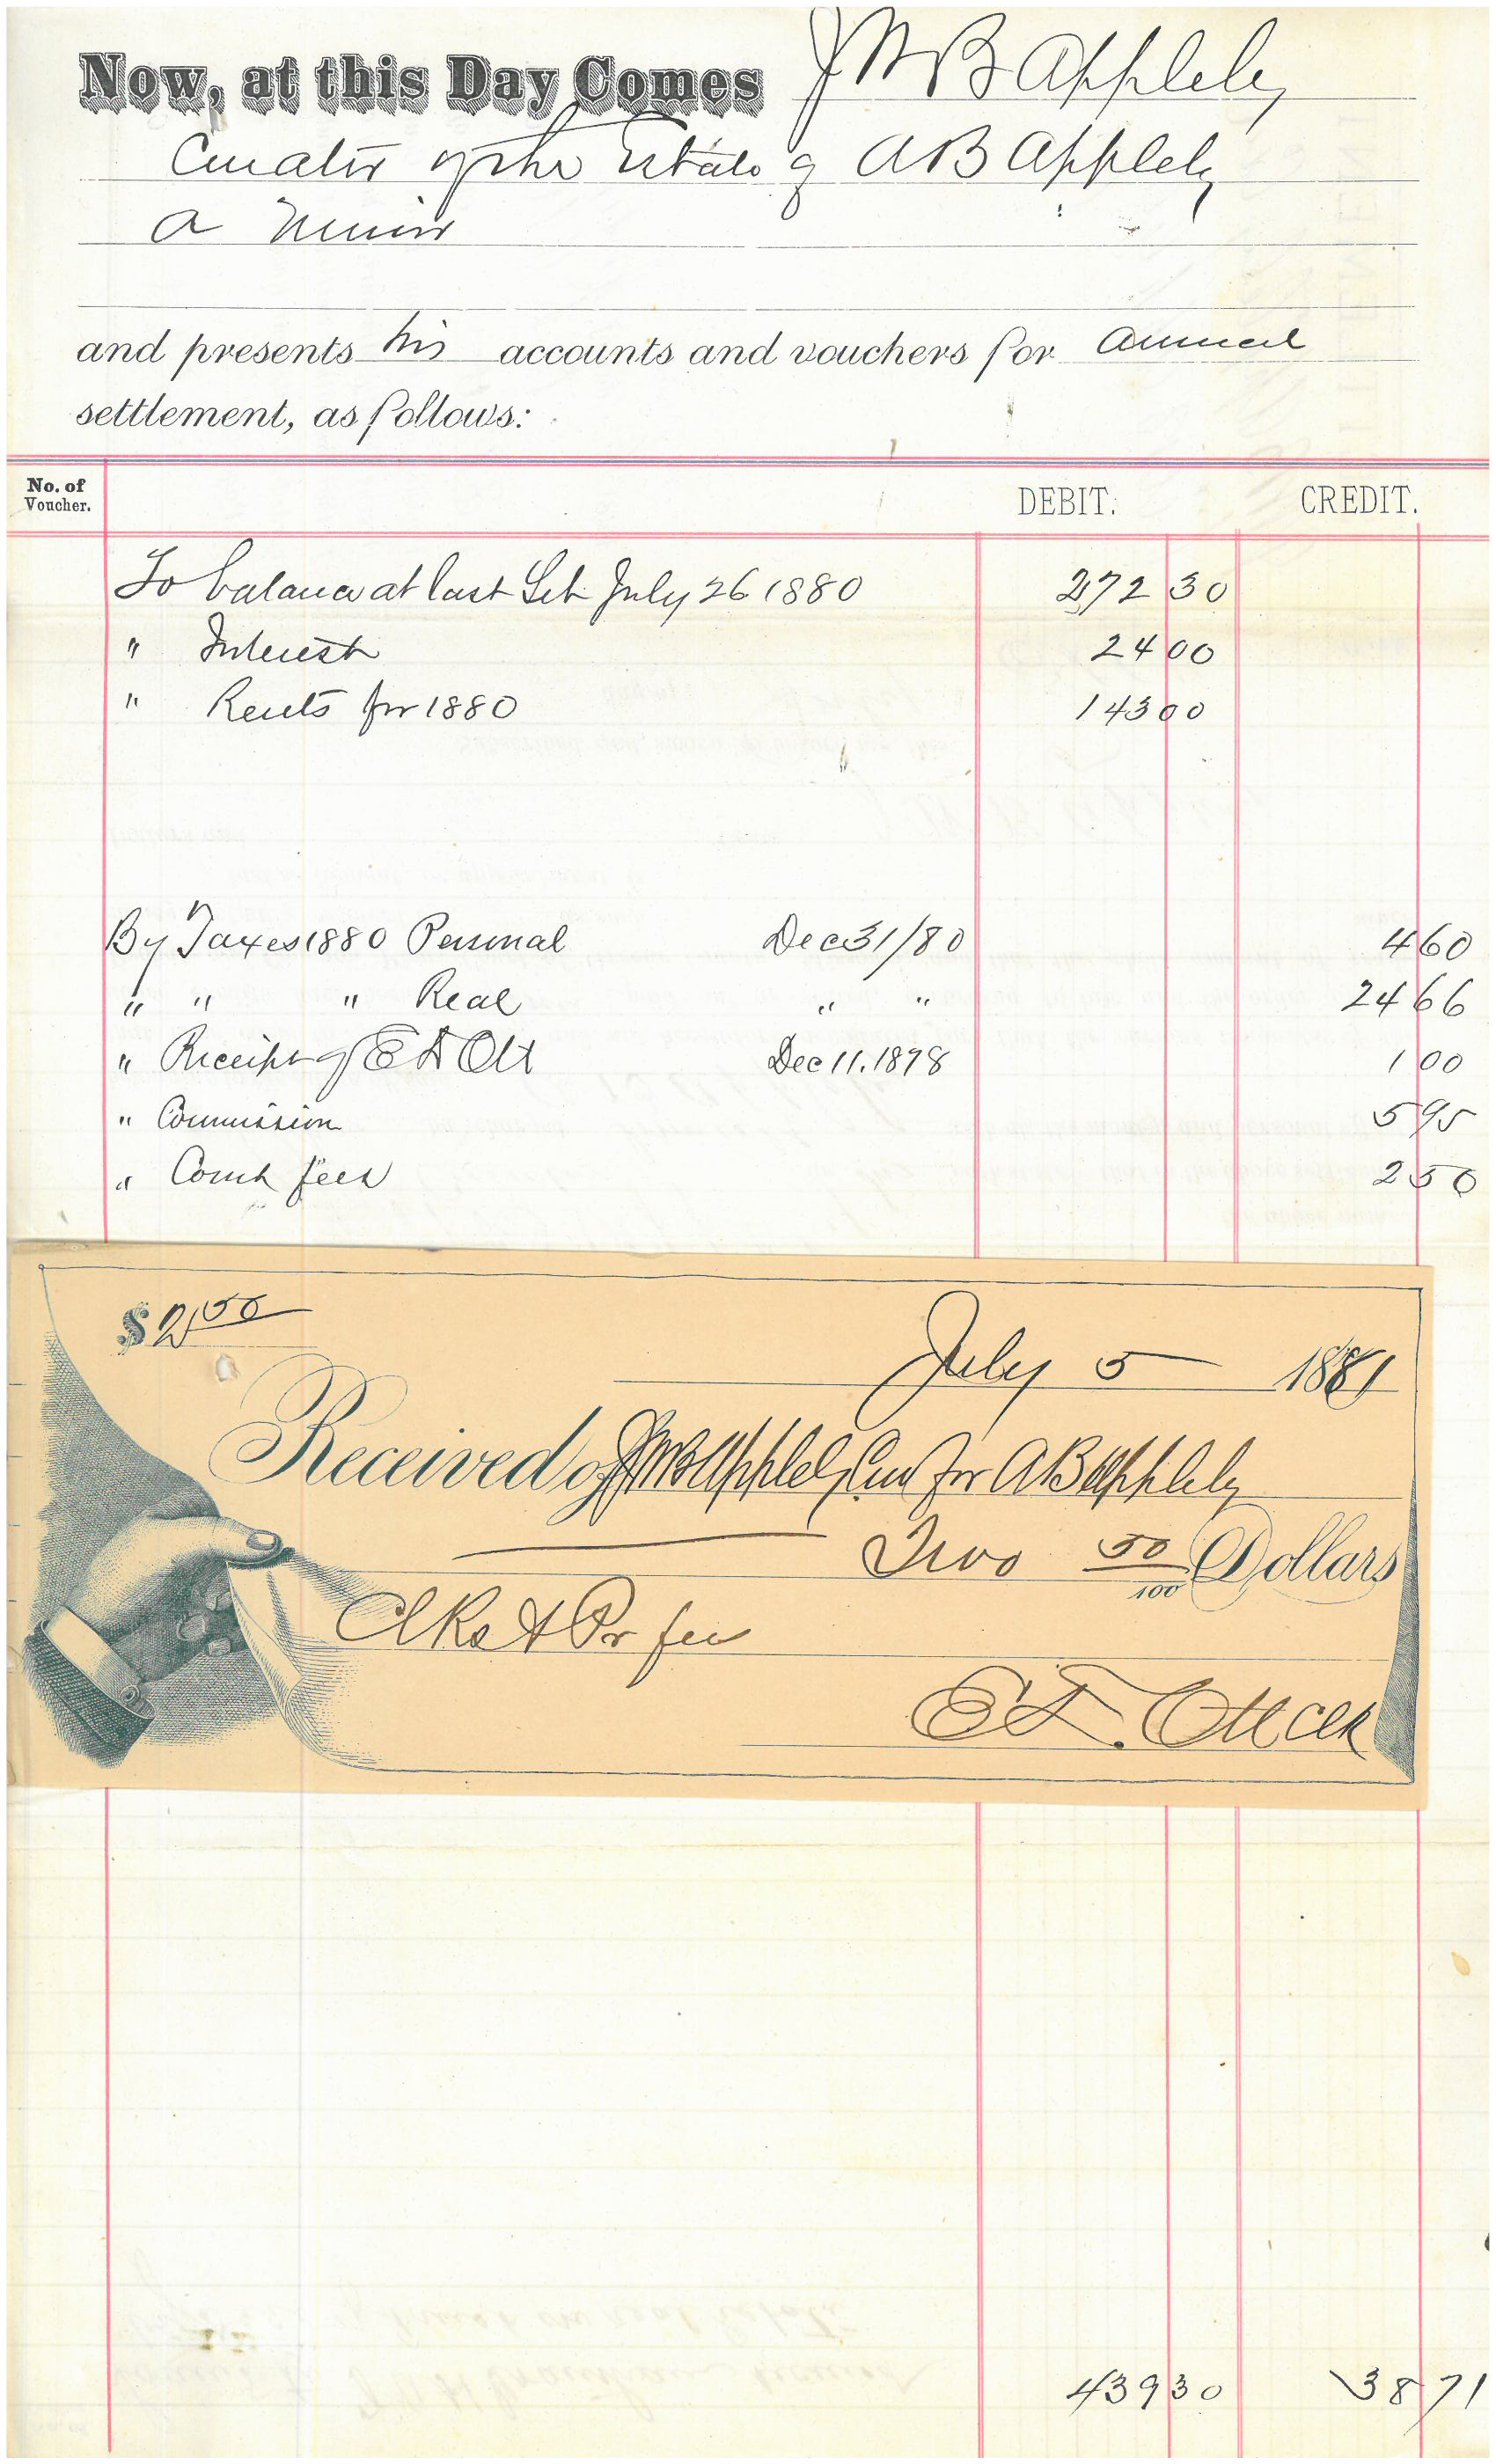 Now, at this Day Comes J W B Appleby
Curator of the Estate of A B Appleby
a minor
and presents his accounts and vouchers for annual
settlement, as follows:
No. of Voucher. DEBIT. CREDIT.
To balance at last Set. July 26 1880 272 30
" Interest 24 00
" Rents for 1880 143 00
By Taxes 1880 Personal Dec 31/80 4 60
" " " Real " " 24 66
" Receipt of E T Ott Dec 11. 1878 1 00
" Commission 5 95
" Court fees 2 50
$2.50
July 5 1881
Received of J W B Appleby Cur for A B Appleby
Two 50/100 Dollars
Clks & Pr fee
E T. Ott Clk
439 30 38 71